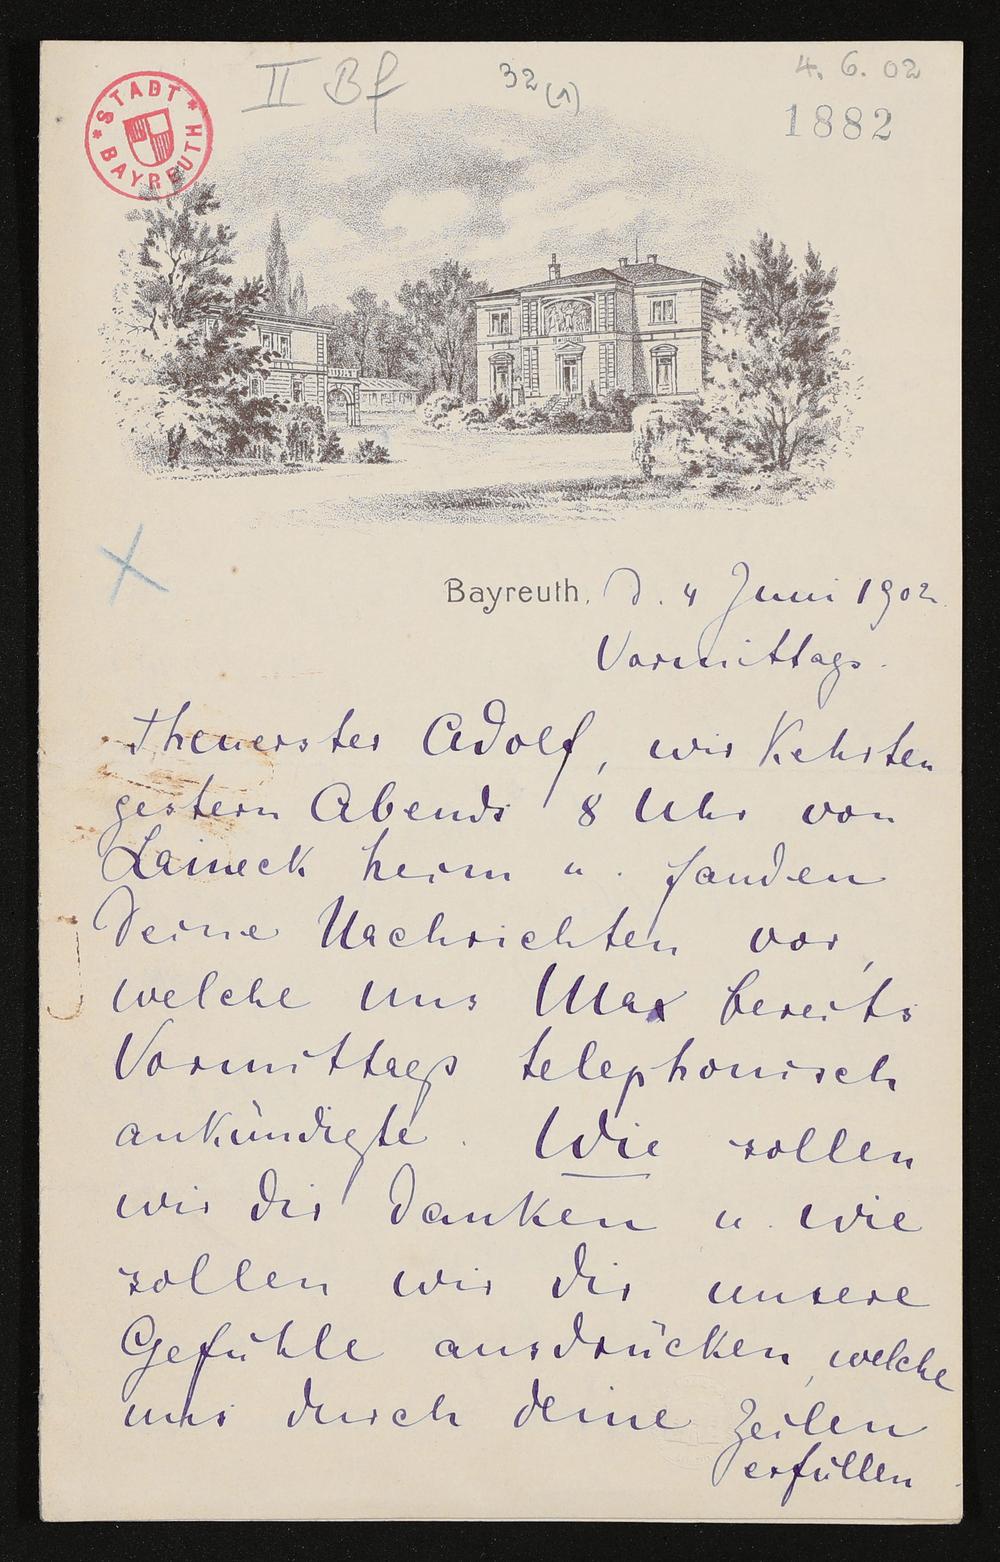 * STADT * BAYREUTH
II Bf
32 (1)
4. 6. 02
1882
Bayreuth, d. 4 Juni 1902
Vormittags.
Theuerster Adolf, wir kehrten
gestern Abends 8 Uhr von
Laineck heim u. fanden
Deine Nachrichten vor,
welche uns Max bereits
Vormittags telephonisch
ankündigte. Wie sollen
wir dir danken u. wie
sollen wir dir unsere
Gefühle ausdrücken, welche
uns durch deine Zeilen
erfüllen